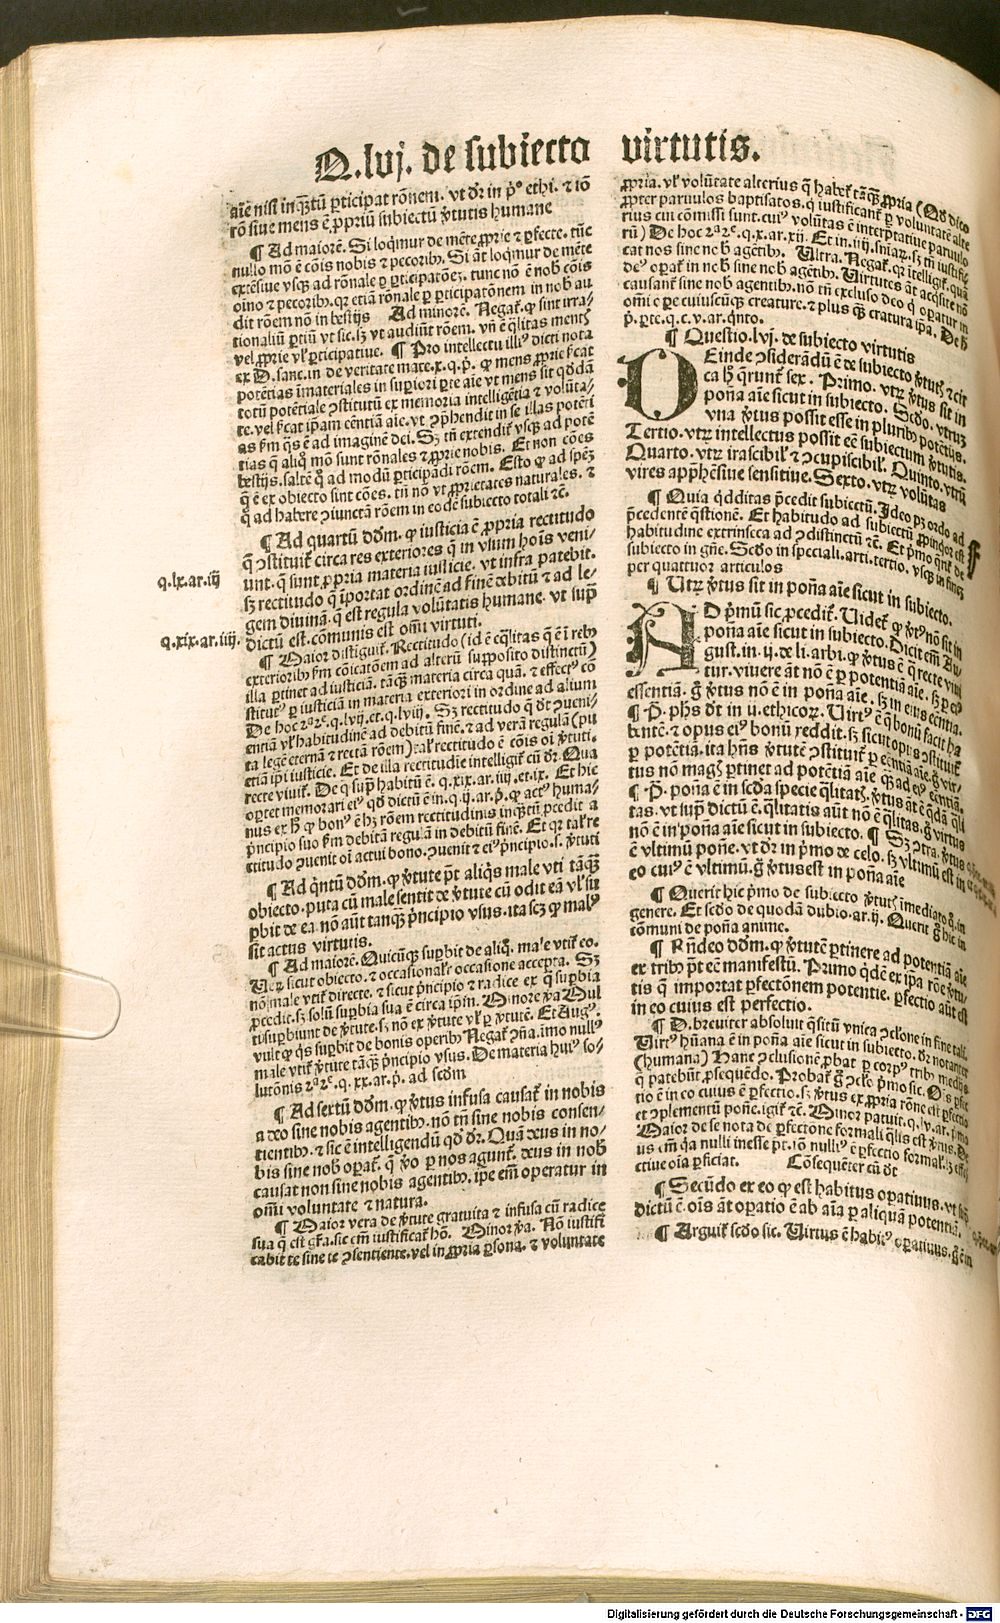 Q.lvj. de subiecto virtutis.
aīe nisi in q̄ȝtū ꝑticipat rōnem. vt dr̄ in p̄º ethi. ⁊ iō
rō siue mens ē ꝓpriū subiectū v̄tutis humane
¶ Ad maiorē. Si loq̄mur de mēte ꝓprie ⁊ ꝑfecte. tūc
nullo mō ē cōis nobis ⁊ pecorib᷒. Si āt loq̄mur de mēte
extēsiue vsq̄ȝ ad rōnale ꝑ ꝑticipatōeȝ. tunc nō ē nob̄ cōis
oīno ⁊ pecorib᷒. qr etiā rōnale ꝑ ꝑticipatōnem in nob̄ au
dit rōem nō in bestijs Ad minorē. Negat᷑. ꝙ sint irra-
tionaliū ꝑtiū vt sic. sȝ vt audiūt rōem. vñ ē q̄litas mentꝭ
vel ꝓprie vl̓ ꝑticipatiue. ¶ Pro intellectu illi᷒ dicti nota
ex D. sanc. in de veritate mate. x. q. p̄. ꝙ mens ꝓprie st̄cat
potētias īmateriales in suꝑiori ꝑte aīe vt mens sit q̄dā
totū potētiale ↄstitutū ex memoria intelligētia ⁊ volūta-
te. vel st̄cat ip̄am eēntiā aīe. vt ↄp̄hendit in se illas potēti
as s̄m q̄s ē ad imaginē dei. Sȝ tn̄ extendit᷑ vsq̄ȝ ad potē
tias q̄ aliq̄ mō sunt rōnales ⁊ ꝓprie nobis. Et non cōes
bestijs. saltē q̊ ad modū ꝑticipādi rōem. Esto ꝙ ad sp̄eȝ
q̄ ē ex obiecto sint cōes. tn̄ nō vt ꝓprietates naturales. ⁊
q̊ ad habere ↄiunctā rōem in eodē subiecto totali ⁊c̄.
¶ Ad quartū dōm. ꝙ iusticia ē ꝓpria rectitudo
q̄ ↄstituit᷑ circa res exteriores q̄ in vsum hoīs veni-
unt. q̄ sunt ꝓpria materia iusticie. vt infra patebit.
q.lx.ar.iij
sȝ rectitudo q̄ īportat ordinē ad finē debitū ⁊ ad le-
gem diuinā. q̄ est regula volūtatis humane. vt sup̄
q.xix.ar.iiij.
dictū est. cōmunis est oīni virtuti.
¶ Maior distiguit᷑. Rectitudo (id ē eq̄litas q̄ ē ī reb᷒
exteriorib᷒ s̄m cōicatōem ad alterū supposito distinctū)
illa ꝑtinet ad iusticiā. tāq̄ȝ materia circa quā. ⁊ effect᷒ cō
stitut᷒ ꝑ iusticiā in materia exteriori in ordine ad alium
De hoc 2ª2e. q. lvij. et. q. lviij. Sȝ rectitudo q̄ dr̄ ↄueni-
entiā vl̓ habitudinē ad debitū finē. ⁊ ad verā regulā (pu
ta legē eternā ⁊ rectā rōem) tal̓ rectitudo ē cōis oī v̄tuti.
etiā ip̄i iusticie. Et de illa rectitudīe intelligit᷑ cū dr̄. Qua
recte viuit᷑. De q̊ sup̄ habitū ē. q. xix. ar. iiij. et. ix. Et hic
oportet memorari ei᷒ qd̄ dictū ē in. q. ij. ar. p̄. ꝙ act᷒ huma-
nus ex h̊ ꝙ bon᷒ ē hȝ rōem rectitudinis inq̄ȝtū ꝓcedit a
p̄ncipio suo s̄m debitā regulā in debitū finē. Et qr tal̓ re
ctitudo ↄuenit oī actui bono. ↄuenit ⁊ ei᷒ p̄ncipio. s. v̄tuti
¶ Ad q̄ntū dōm. ꝙ v̄tute p̄t aliq̄s male vti tāq̄ȝ
obiecto. puta cū male sentit de v̄tute cū odit eā vl̓ su
ꝑbit de ea. nō aūt tanq̄ȝ p̄ncipio vsus. ita scȝ ꝙ mal᷒
sit actus virtutis.
¶ Ad maiorē. Quicūq̄ȝ suꝑbit de aliq̊. male vtit᷑ eo.
Ver᷒ sicut obiecto. ⁊ occasional̓r occasione accepta. Sȝ
nō male vtit᷑ directe. ⁊ sicut p̄ncipio ⁊ radice ex q̊ suꝑbia
ꝓcedit. sȝ solū suꝑbia sua ē circa ip̄m. Minore v̓a Mul
ti suꝑbiunt de v̄tute. sȝ nō ex v̄tute vl̓ ꝑ v̄tutē. Et Aug᷒.
vult ꝙ q̄s suꝑbit de bonis operib᷒ Negat᷑ ↄña. īmo null᷒
male vtit᷑ v̄tute tāq̄ȝ p̄ncipio vsus. De materia hui᷒ so-
lutōnis 2ª2e. q. xx. ar. p̄. ad scdm
¶ Ad sextū dōm. ꝙ v̄tus infusa causat᷑ in nobis
a deo sine nobis agentib᷒. nō tn̄ sine nobis consen-
tientib᷒. ⁊ sic ē intelligendū qd̄ dr̄. Quā deus in no-
bis sine nob̄ oꝑat᷑. q̄ v̊o ꝑ nos agunt᷑. deus in nob̄
causat non sine nobis agentib᷒. ip̄e em̄ operatur in
oīni voluntate ⁊ natura.
¶ Maior vera de v̄tute gratuita ⁊ infusa cū radice
sua q̄ est gr̄a. sic em̄ iustificat᷑ hō. Minor v̓a. Nō iustifi
cabit te sine te ↄsentiente. vel in ꝓpria ꝑsona. ⁊ voluntate
ꝓpria. vl̓ volūtate alterius q̄ habet᷑ tāq̄ȝ ꝓpria (Qd̄ dico
ꝓpter paruulos baptisatos. q̄ iustificant᷑ ꝑ voluntatē alte
rius cui cōmissi sunt. cui᷒ volūtas ē interp̄tatiue paruulo
rū) De hoc 2ª2e. q. x. ar. xij. Et in. iiij. sniaꝝ. sȝ tn̄ iustifi
cat nos sine nob̄ agētib᷒. Ultra. Negat᷑. qr ītelligit᷑. quā
de᷒ oꝑat᷑ in nob̄ sine nob̄ agētib᷒. Virtutes āt acq̄site nō
causant᷑ sine nob̄ agentib᷒. nō tn̄ excluso deo q̄ oꝑatur in
oīni oꝑe cuiuscūq̄ȝ creature. ⁊ plus q̄ȝ creatura ip̄a. De h̊
p̄. ꝑte. q. c. v. ar. q̄nto.
¶ Questio. lvj. de subiecto virtutis
DEinde ↄsiderādū ē de subiecto v̄tutꝭ ⁊ cir
ca h̊ q̄runt᷑ sex. Primo. vtꝝ v̄tus sit in
poña aīe sicut in subiecto. Scd̄o. vtruȝ
vna v̄tus possit esse in plurib᷒ potētijs.
Tertio. vtꝝ intellectus possit eē subiectum v̄tutis.
Quarto. vtꝝ irascibil̓ ⁊ ↄcupiscibil̓. Quinto. vtrū
vires app̄hēsiue sensitiue. Sexto. vtꝝ volūtas
¶ Quia q̄dditas p̄cedit subiectū. Ideo pȝ ordo ad
p̄cedentē q̄stionē. Et habitudo ad subiectū ꝓpinq̊or est
habitudine extrinseca ad ↄdistinctū ⁊c̄. Et p̄mo q̄rit᷑ de
subiecto in gn̄e. Scd̄o in speciali. arti. tertio. vsq̄ȝ in fineȝ
per quattuor articulos
¶ Utꝝ v̄tus sit in poña aīe sicut in subiecto.
AD p̄mū sic ꝓcedit᷑. Videt᷑ ꝙ v̄t᷒ nō sit in
poña aīe sicut in subiecto. Dicit em̄ Au-
gust. in. ij. de li. arbi. ꝙ v̄tus ē q̄ recte viui
tur. viuere āt nō ē ꝑ potentiā aīe. sȝ ꝑ ei᷒
essentiā. g̊ v̄tus nō ē in poña aīe. sȝ in eius eēntia.
¶ P̄. ph̄s dt̄ in ij. ethicoꝝ. Virt᷒ ē q̄ bonū facit ha
bentē. ⁊ opus ei᷒ bonū reddit. sȝ sicut opus ↄstituit᷑
ꝑ potētiā. ita hn̄s v̄tutē ↄstituit᷑ ꝑ eēntiā aīe. g̊ vir-
tus nō magꝭ ꝑtinet ad potētiā aīe q̄ȝ ad ei᷒ eēntiā.
¶ P̄. poña ē in scd̄a specie q̄litatꝭ. v̄tus āt ē q̄dā q̄li
tas. vt sup̄ dictū ē. q̄litatis aūt nō ē q̄litas. g̊ virtus
nō ē in poña aīe sicut in subiecto. ¶ Sȝ ↄtra. v̄tus
ē vltimū poñe. vt dr̄ in p̄mo de celo. sȝ vltimū est in
eo cui᷒ ē vltimū. g̊ v̄tus est in poña aīe
¶ Querit hic p̄mo de subiecto v̄tutꝭ īmediato q̊. in
genere. Et scd̄o de quodā dubio. ar. ij. Querit g̊ hic in
cōmuni de poña anime.
¶ Rn̄deo dōm. ꝙ v̄tutē ꝑtinere ad potentiā aīe
ex trib᷒ p̄t eē manifestū. Primo q̄dē ex ip̄a rōe v̄tu-
tis q̄ importat ꝑfectōnem potentie. ꝑfectio aūt est
in eo cuius est perfectio.
¶ D. breuiter absoluit q̄sitū vnica ↄclōne in fine tali.
Virt᷒ hūana ē in poña aīe sicut in subiecto. dr̄ notanter
(humana) Hanc ↄclusionē ꝓbat ꝑ corp᷒ trib᷒ medijs.
q̄ patebūt ꝓsequēdo. Probat᷑ g̊ ↄclō p̄mo sic. Oīs ꝑfec
tio ē in eo cuius ē ꝑfectio. sȝ v̄tus ex ꝓpria rōne est ꝑfectio
et ↄplementū poñe. igit᷑ ⁊c̄. Minor patuit. q. lv. ar. p̄mo
Maior de se nota de ꝑfectōne formali q̄lis est v̄tus. De
us em̄ q̄a nulli inesse p̄t. iō nulli᷒ ē ꝑfectio formal̓. sȝ effe
ctiue oīa ꝑficiat. Cōsequēter cū dt̄
¶ Secūdo ex eo ꝙ est habitus oꝑatiuus. vt sup̄
dictū ē. oīs āt oꝑatio ē ab aīa ꝑ aliquā potentiā.
¶ Arguit᷑ scd̄o sic. Virtus ē habit᷒ oꝑatiuus. g̊ ē in